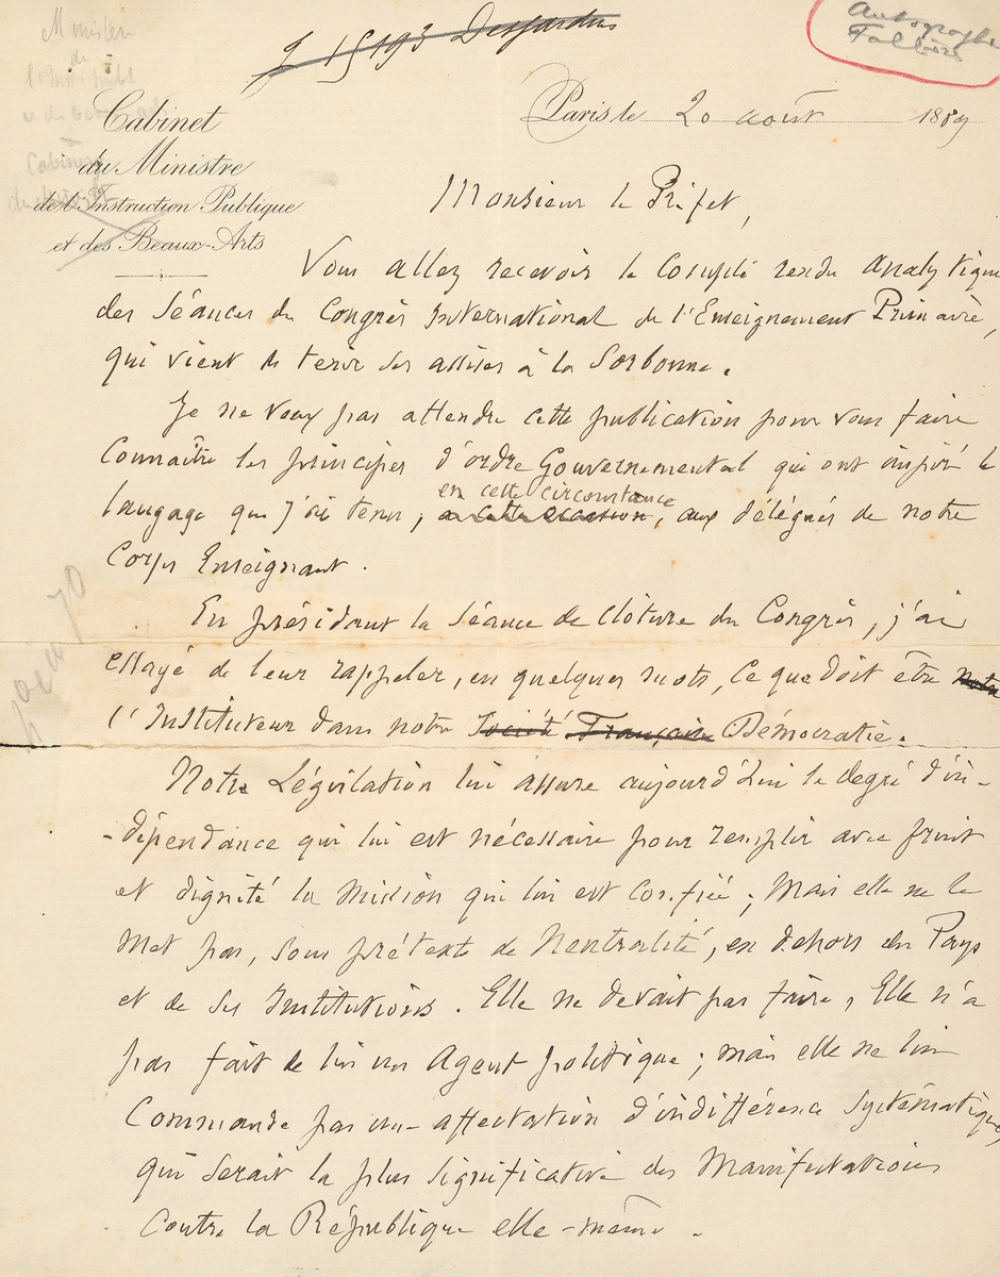 J 15193 Desjardins
Autographe
Fallières
Ministère
de
l'Inst. publ.
Cabinet
Cabinet
du Ministre
de l'Instruction Publique
et des Beaux-Arts
Paris le 20 août 1889
Monsieur le Préfet,
Vous allez recevoir le Compte rendu Analytique
des Séances du Congrès International de l'Enseignement Primaire,
qui vient de tenir ses assises à la Sorbonne.
Je ne veux pas attendre cette publication pour vous faire
Connaître les principes d'ordre Gouvernemental qui ont inspiré le
en cette circonstance
langage que j'ai tenu, à cette occasion, aux délégués de notre
Corps Enseignant.
En présidant la Séance de clôture du Congrès, j'ai
essayé de leur rappeler, en quelques mots, ce que doit être notre
l'Instituteur dans notre Société Française Démocratie.
Notre Législation lui assure aujourd'hui le degré d'in-
-dépendance qui lui est nécessaire pour remplir avec fruit
et dignité la Mission qui lui est Confiée ; Mais elle ne le
Met pas, sous prétexte de Neutralité, en dehors du Pays
et de ses Institutions. Elle ne devait pas faire, Elle n'a
pas fait de lui un Agent politique ; mais elle ne lui
Commande pas une affectation d'indifférence Systématique,
qui serait la plus significative des Manifestations
Contre la République elle-même.